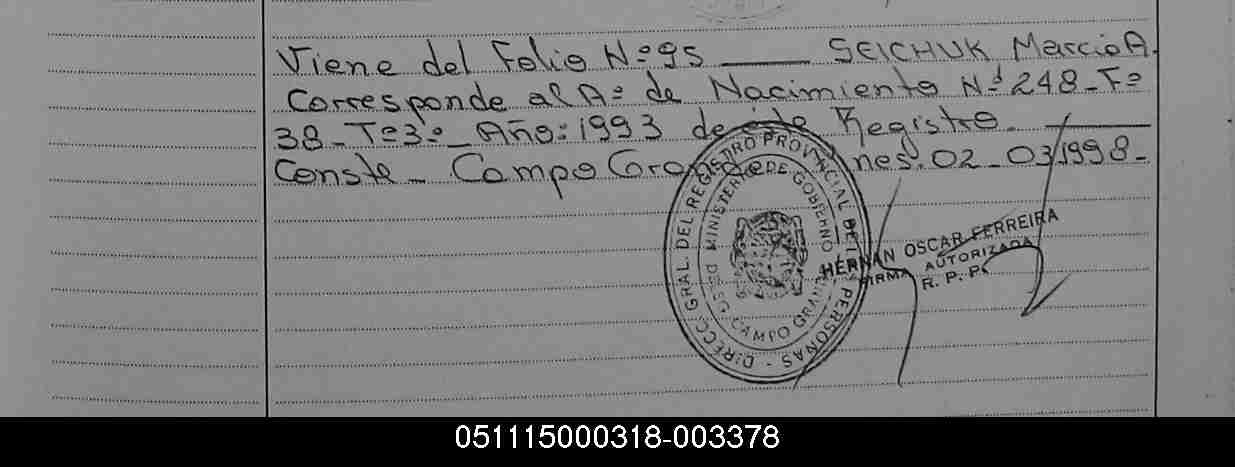 Viene del Folio Nº 95 ____ SEICHUK Marcio A.
Corresponde al Aº de Nacimiento Nº 248 - Fº
38 - Tº 3º - Año: 1993 de este Registro. ____
Conste - Campo Grande nes. 02 - 03/1998 -
DIRECC. GRAL. DEL REGISTRO PROVINCIAL DE PERSONAS -
MINISTERIO DE GOBIERNO
CAMPO GRANDE
HERNAN OSCAR FERREIRA
FIRMA AUTORIZADA
R. P. P.
051115000318-003378